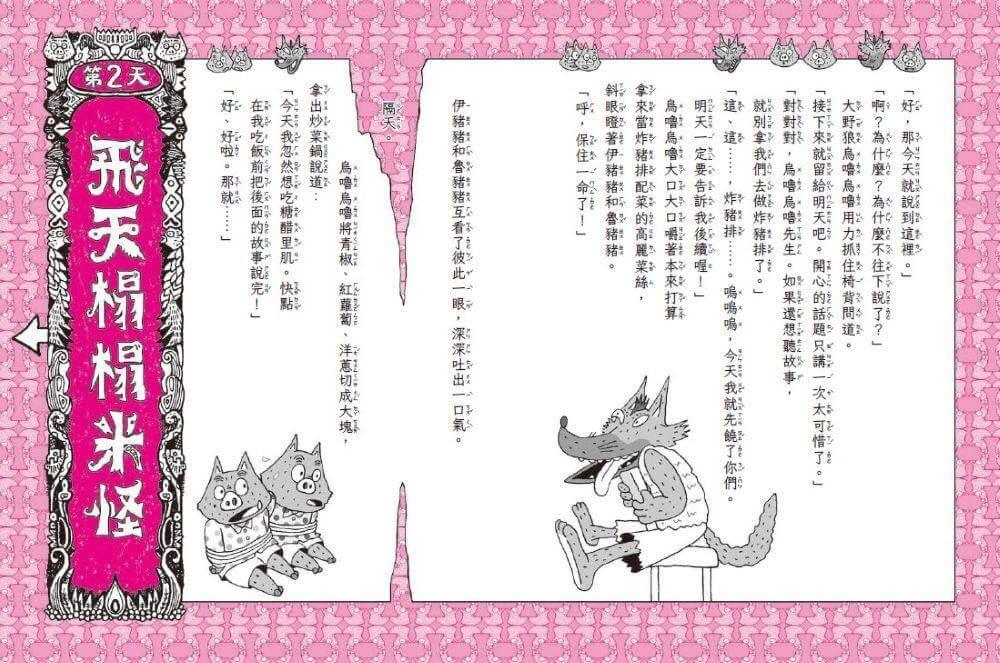 「好，那今天就說到這裡。」
「啊？為什麼？為什麼不往下說了？」
大野狼烏嚕烏嚕用力抓住椅背問道。
「接下來就留給明天吧。開心的話題只講一次太可惜了。」
「對對對，烏嚕烏嚕先生。如果還想聽故事，
就別拿我們去做炸豬排了。」
「這、這……，炸豬排……。嗚嗚嗚，今天我就先饒了你們。
明天一定要告訴我後續喔！」
烏嚕烏嚕大口大口嚼著本來打算
拿來當炸豬排配菜的高麗菜絲，
斜眼瞪著伊豬豬和魯豬豬。
「呼，保住一命了！」
伊豬豬和魯豬豬互看了彼此一眼，深深吐出一口氣。
隔天。
烏嚕烏嚕將青椒、紅蘿蔔、洋蔥切成大塊，
拿出炒菜鍋說道：
「今天我忽然想吃糖醋里肌。快點
在我吃飯前把後面的故事說完！」
「好、好啦。那就……」
第2天
飛天榻榻米怪